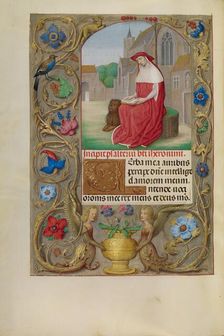 Incipit psalterium beati iheronimi.
Verba mea auribus
percipe domine intellige
clamorem meum
Intende voci
orationis mee rex meus et deus meus